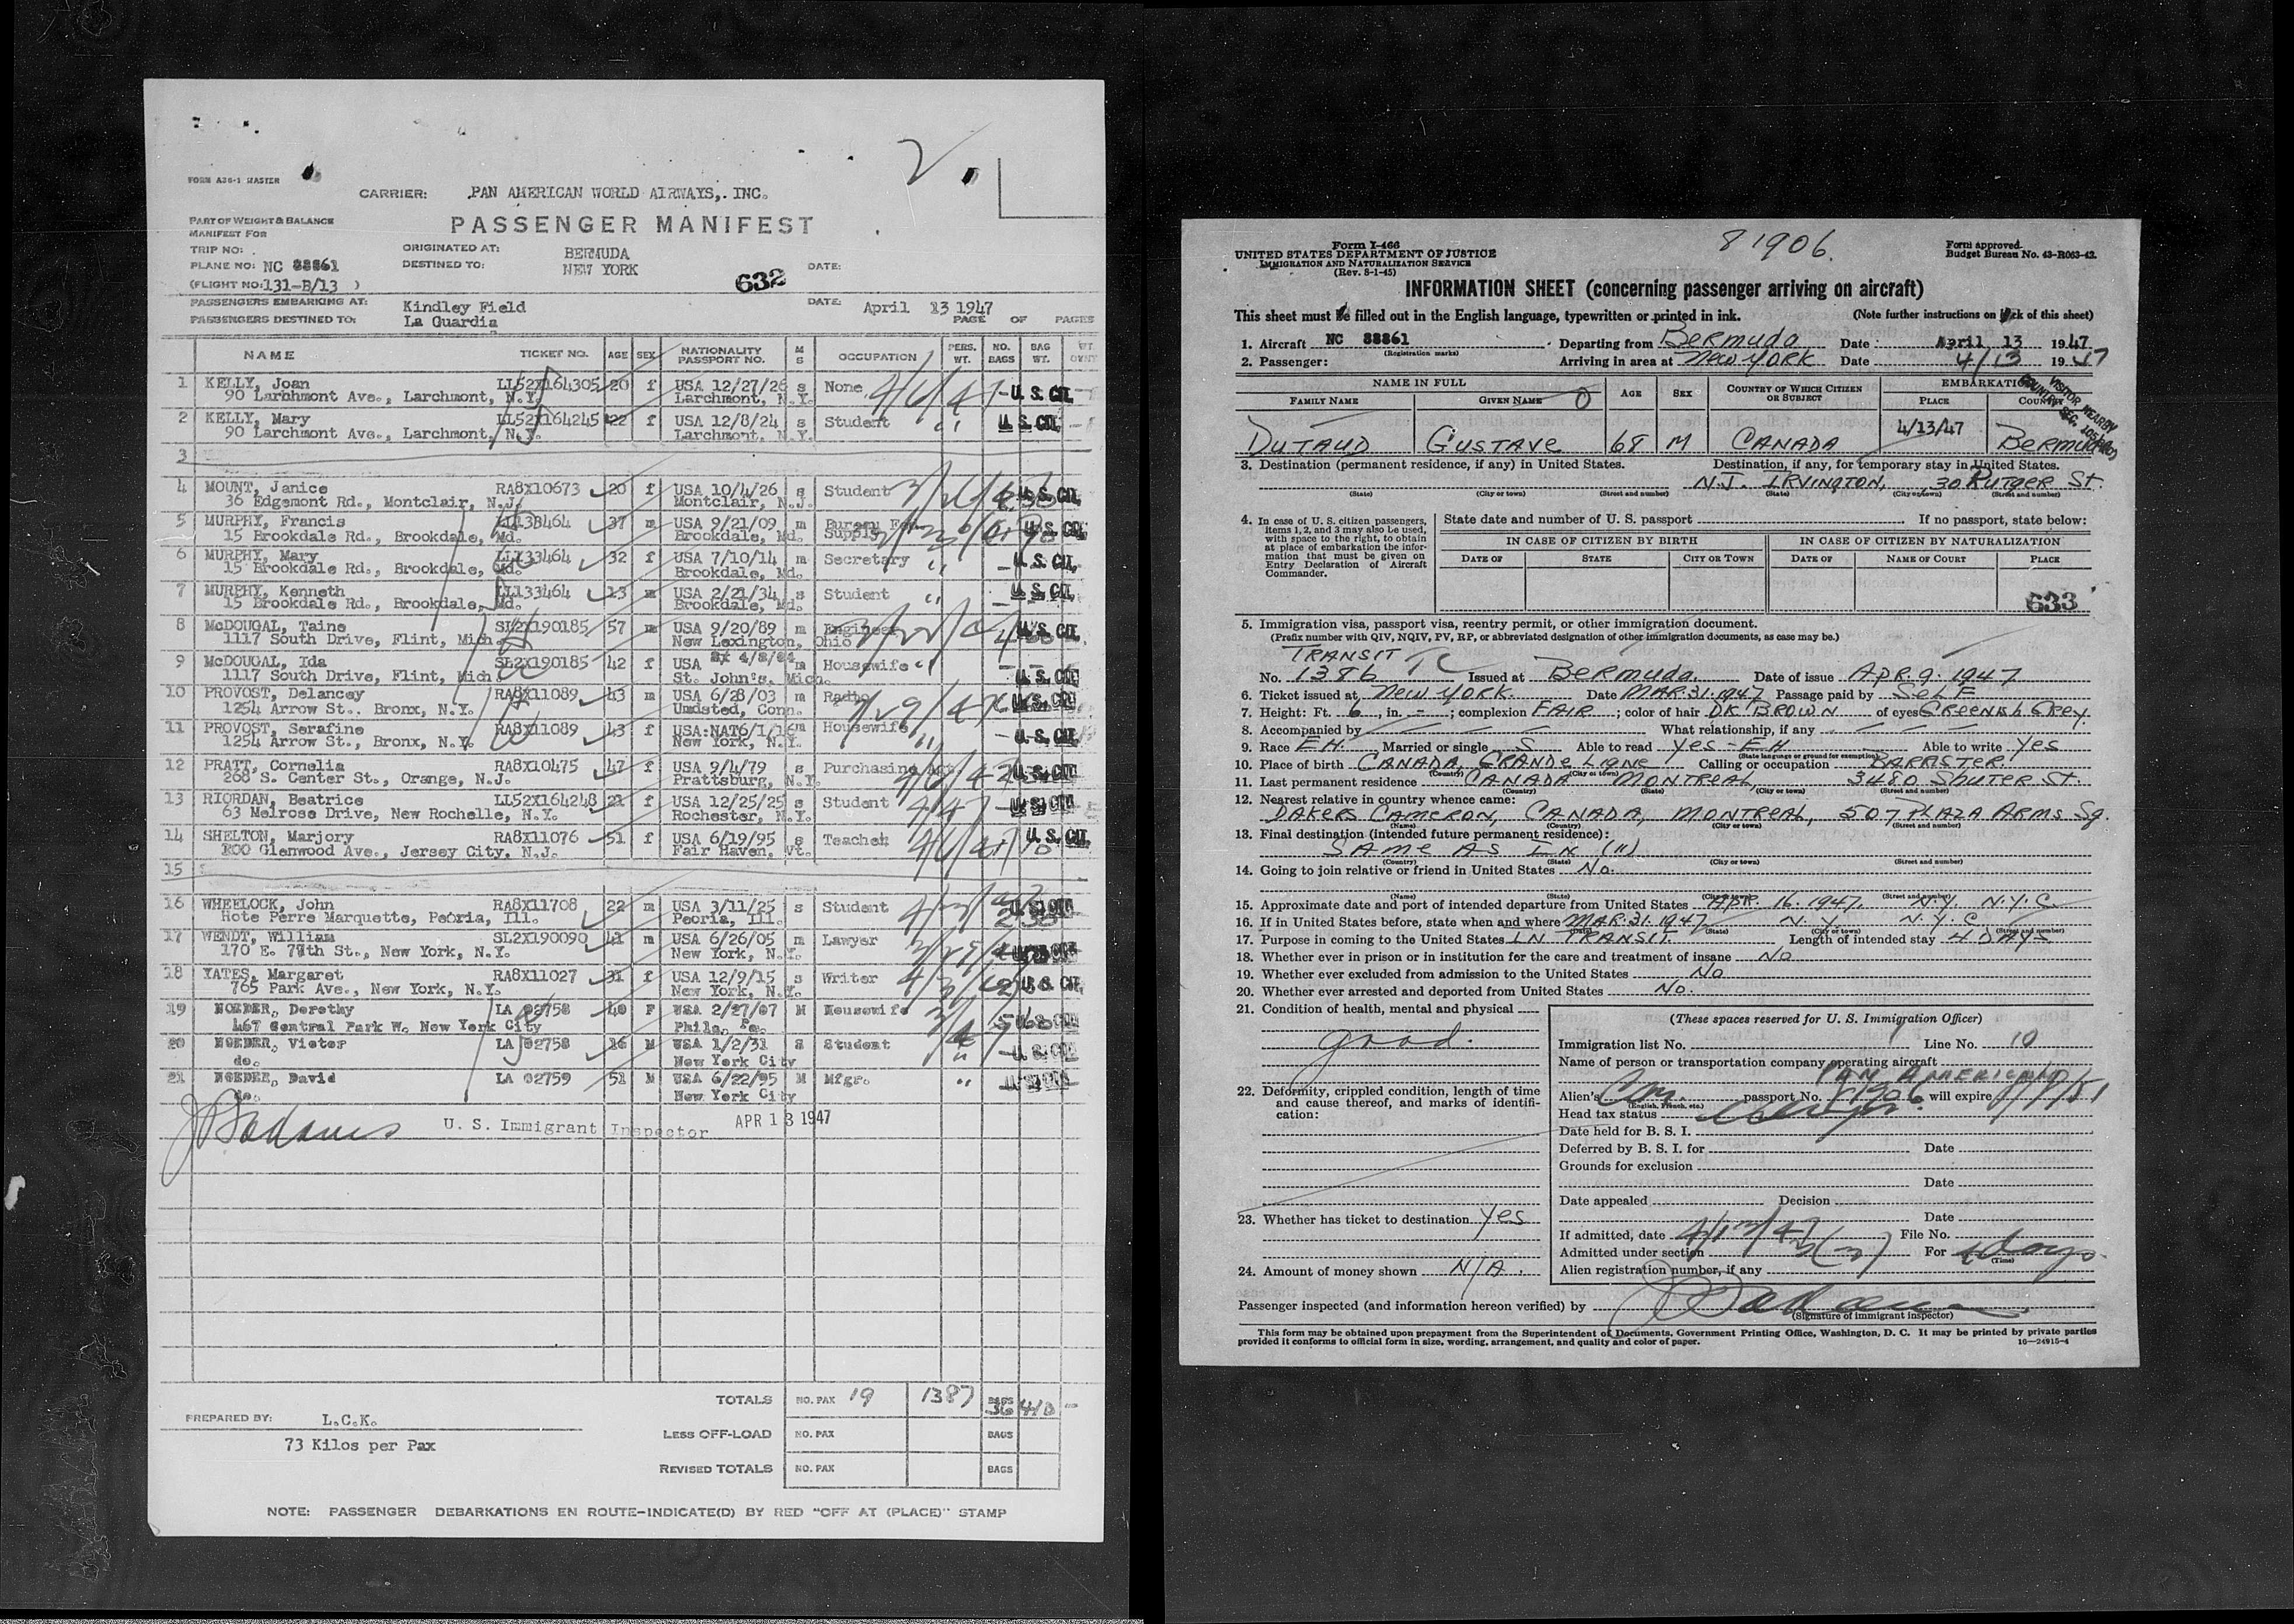 2
FORM A36-1 MASTER
CARRIER: PAN AMERICAN WORLD AIRWAYS, INC.
PASSENGER MANIFEST
PART OF WEIGHT & BALANCE
MANIFEST FOR
TRIP NO: ORIGINATED AT: BERMUDA
PLANE NO: NC 88861 DESTINED TO: NEW YORK DATE:
(FLIGHT NO: 131-B/13 ) 632
PASSENGERS EMBARKING AT: Kindley Field DATE: April 13 1947
PASSENGERS DESTINED TO: La Guardia PAGE OF PAGES
NAME TICKET NO. AGE SEX NATIONALITY PASSPORT NO. M S OCCUPATION PERS. WT. NO. BAGS BAG WT.
1 KELLY, Joan LL52X164305 20 f USA 12/27/26 s None 4/6/47 U. S. CIT.
90 Larchmont Ave., Larchmont, N.Y. Larchmont, N.Y.
2 KELLY, Mary LL52X164245 22 f USA 12/8/24 s Student " U. S. CIT.
90 Larchmont Ave., Larchmont, N.Y. Larchmont, N.Y.
3
4 MOUNT, Janice RA8X10673 20 f USA 10/4/26 s Student U. S. CIT.
36 Edgemont Rd., Montclair, N.J. Montclair, N.J.
5 MURPHY, Francis 37 m USA 9/21/09 m U. S. CIT.
15 Brookdale Rd., Brookdale, Md. Brookdale, Md. Supply
6 MURPHY, Mary LL133464 32 f USA 7/10/14 m Secretary " U. S. CIT.
15 Brookdale Rd., Brookdale, Md. Brookdale, Md.
7 MURPHY, Kenneth LL133464 13 m USA 2/21/34 s Student " U. S. CIT.
15 Brookdale Rd., Brookdale, Md. Brookdale, Md.
8 McDOUGAL, Taine SL2X190185 57 m USA 9/20/89 m Engineer U. S. CIT.
1117 South Drive, Flint, Mich New Lexington, Ohio
9 McDOUGAL, Ida SL2X190185 42 f USA m Housewife " U. S. CIT.
1117 South Drive, Flint, Mich. St. John's, Mich.
10 PROVOST, Delancey RA8X11089 43 m USA 6/28/03 m Radio U. S. CIT.
1254 Arrow St.. Bronx, N.Y. Umdsted, Conn.
11 PROVOST, Serafine RA8X11089 43 f USA:NAT6/1/16 m Housewife " U. S. CIT.
1254 Arrow St., Bronx, N.Y. New York, N.Y.
12 PRATT, Cornelia RA8X10475 47 f USA 9/4/79 s Purchasing U. S. CIT.
268 S. Center St., Orange, N.J. Prattsburg, N.Y.
13 RIORDAN, Beatrice LL52X164248 21 f USA 12/25/25 s Student U. S. CIT.
63 Melrose Drive, New Rochelle, N.Y. Rochester, N.Y.
14 SHELTON, Marjory RA8X11076 51 f USA 6/19/95 s Teacher U. S. CIT.
Glenwood Ave., Jersey City, N.J. Fair Haven, Vt.
15
16 WHEELOCK, John RA8X11708 22 m USA 3/11/25 s Student
Hote Perre Marquette, Peoria, Ill. Peoria, Ill.
17 WENDT, William SL2X190090 41 m USA 6/26/05 m Lawyer
170 E. 79th St., New York, N.Y. New York, N.Y.
18 YATES, Margaret RA8X11027 31 f USA 12/9/15 s Writer U. S. CIT.
765 Park Ave., New York, N.Y. New York, N.Y.
19 NOEDER, Dorothy LA 02758 40 F USA 2/27/07 M Housewife
467 Central Park W. New York City Phila, Pa.
20 NOEDER, Victor LA 02758 16 M USA 1/2/31 S Student " U. S. CIT.
do. New York City
21 NOEDER, David LA 02759 51 M USA 6/22/95 M Mfgr. "
do. New York City
U. S. Immigrant Inspector APR 13 1947
TOTALS NO. PAX 19 1387 BAGS 36 410 -
PREPARED BY: L.C.K. LESS OFF-LOAD NO. PAX BAGS
73 Kilos per Pax
REVISED TOTALS NO. PAX BAGS
NOTE: PASSENGER DEBARKATIONS EN ROUTE-INDICATE(D) BY RED "OFF AT (PLACE)" STAMP
81906
Form I-466
UNITED STATES DEPARTMENT OF JUSTICE
IMMIGRATION AND NATURALIZATION SERVICE
(Rev. 8-1-45)
Form approved
Budget Bureau No. 43-R063-42.
INFORMATION SHEET (concerning passenger arriving on aircraft)
This sheet must be filled out in the English language, typewritten or printed in ink. (Note further instructions on back of this sheet)
1. Aircraft NC 88861 Departing from Bermuda Date April 13 1947
(Registration marks)
2. Passenger: Arriving in area at New York Date 4/13 1947
NAME IN FULL AGE SEX COUNTRY OF WHICH CITIZEN OR SUBJECT EMBARKATION
FAMILY NAME GIVEN NAME PLACE COUNTRY
DUTAUD GUSTAVE 68 M CANADA 4/13/47 BERMUDA
3. Destination (permanent residence, if any) in United States. Destination, if any, for temporary stay in United States.
N.J. IRVINGTON, 30 RUTGER St.
(State) (City or town) (Street and number) (State) (City or town) (Street and number)
4. In case of U. S. citizen passengers, items 1, 2, and 3 may also be used, with space to the right, to obtain at place of embarkation the information that must be given on Entry Declaration of Aircraft Commander.
State date and number of U. S. passport If no passport, state below:
IN CASE OF CITIZEN BY BIRTH IN CASE OF CITIZEN BY NATURALIZATION
DATE OF STATE CITY OR TOWN DATE OF NAME OF COURT PLACE
633
5. Immigration visa, passport visa, reentry permit, or other immigration document.
(Prefix number with QIV, NQIV, PV, RP, or abbreviated designation of other immigration documents, as case may be.)
TRANSIT
No. 1386 Issued at Bermuda. Date of issue APR. 9. 1947
6. Ticket issued at New York Date MAR. 31. 1947 Passage paid by SELF
7. Height: Ft. 6, in. -; complexion FAIR; color of hair DK BROWN of eyes GREENISH GREY.
8. Accompanied by What relationship, if any
9. Race E.H. Married or single S Able to read Yes - E H Able to write Yes
(State language or ground for exemption)
10. Place of birth CANADA, GRANDE LIGNE Calling or occupation BARRISTER
(Country) (City or town)
11. Last permanent residence CANADA MONTREAL, 3480 SHUTER St.
(Country) (State) (City or town) (Street and number)
12. Nearest relative in country whence came:
DAKERS CAMERON, CANADA, MONTREAL, 507 PLAZA ARMS Sq.
(Name) (Country) (City or town) (Street and number)
13. Final destination (intended future permanent residence):
SAME AS IN (11)
(Country) (State) (City or town) (Street and number)
14. Going to join relative or friend in United States No.
(Name) (State) (City or town) (Street and number)
15. Approximate date and port of intended departure from United States APR. 16. 1947. N.Y. N.Y.C.
16. If in United States before, state when and where MAR. 31. 1947 N.Y. N.Y.C
(Date) (State) (City or town) (Street and number)
17. Purpose in coming to the United States IN TRANSIT. Length of intended stay 4 DAYS
18. Whether ever in prison or in institution for the care and treatment of insane No
19. Whether ever excluded from admission to the United States No
20. Whether ever arrested and deported from United States No.
21. Condition of health, mental and physical
good.
22. Deformity, crippled condition, length of time and cause thereof, and marks of identification:
23. Whether has ticket to destination Yes
24. Amount of money shown N/A.
(These spaces reserved for U. S. Immigration Officer)
Immigration list No. 1 Line No. 10
Name of person or transportation company operating aircraft
PAN AMERICAN
Alien's Can. passport No. 81906 will expire
(English, French, etc.)
Head tax status
Date held for B. S. I.
Deferred by B. S. I. for Date
Grounds for exclusion
Date
Date appealed Decision
Date
If admitted, date 4/13/47 File No.
Admitted under section 3(3) For 4 days
(Time)
Alien registration number, if any
Passenger inspected (and information hereon verified) by
(Signature of immigrant inspector)
This form may be obtained upon prepayment from the Superintendent of Documents, Government Printing Office, Washington, D. C. It may be printed by private parties
provided it conforms to official form in size, wording, arrangement, and quality and color of paper. 16-24915-4